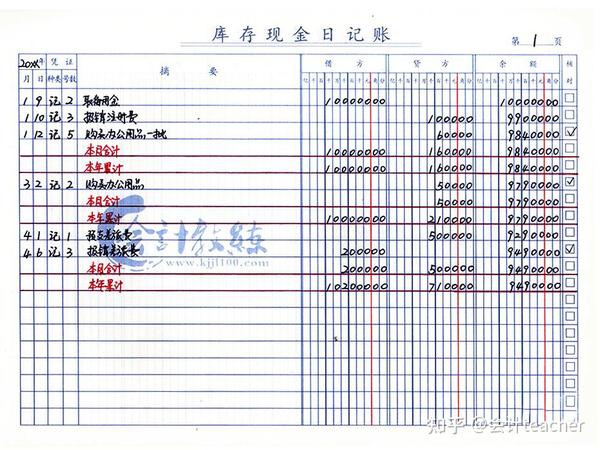 库存现金日记账
第 1 页
20XX年 凭证 摘要 借方 贷方 余额 核对
月 日 种类 号数 亿千百十万千百十元角分 亿千百十万千百十元角分 亿千百十万千百十元角分
1 9 记 2 取备用金 10000000 10000000
1 10 记 3 报销注册费 100000 9900000
1 12 记 5 购买办公用品一批 60000 9840000 ✓
本月合计 10000000 160000 9840000
本年累计 10000000 160000 9840000
3 2 记 2 购买办公用品 50000 9790000 ✓
本月合计 50000 9790000
本年累计 10000000 210000 9790000
4 1 记 1 差旅费 500000 9290000
4 6 记 3 报销差旅费 200000 9490000 ✓
本月合计 200000 500000 9490000
本年累计 10200000 710000 9490000
会计教练
www.kjjl100.com
知乎 @会计teacher